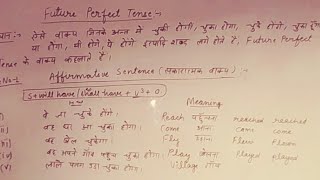 Future Perfect Tense:-
ऐसे वाक्य जिनके अन्त में चुकी होगी, चुका होगा, चुके होंगे, चुका
या होगा, यी होगी, ये होंगे इत्यादि शब्द लगे होते हैं, Future Perfect
Tense के वाक्य कहलाते हैं।
No-1 Affirmative Sentence (सकारात्मक वाक्य)
S+will have/shall have + V³ + O
Meaning
वे आ चुके होंगे। Reach पहुँचना reached reached
वह घर आ चुका होगा। Come आना came come
वह खेल चुकेगा। Fly Flew Flown
वह अपने गाँव पहुँच चुका होगा। Play खेलना Played Played
उड़ा चुका होगा। Village गाँव